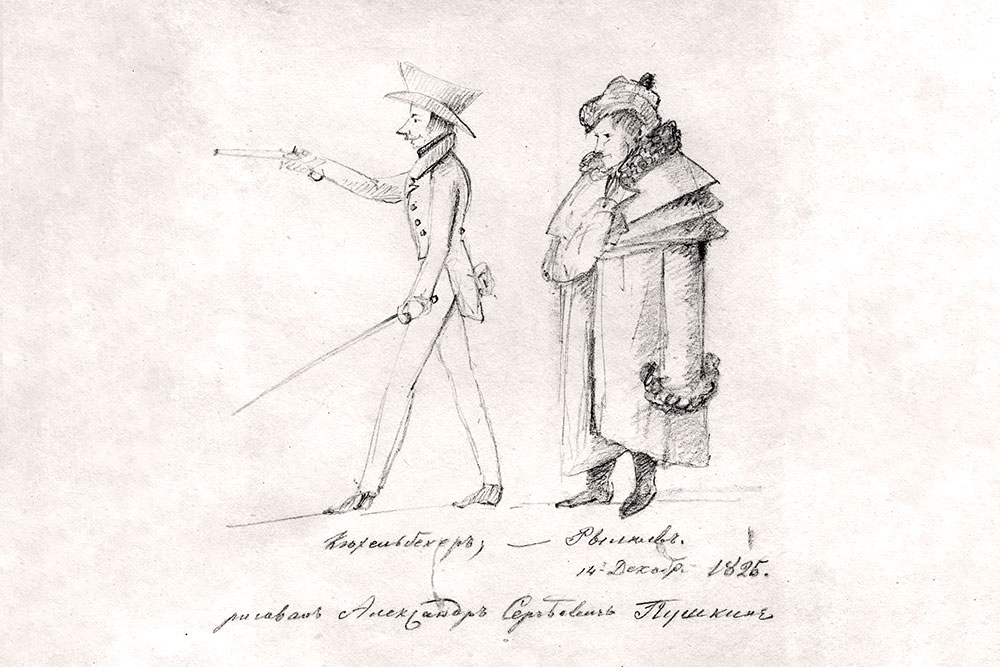 Кюхельбекеръ; — Рылѣевъ.
14го Декабр. 1825.
рисовалъ Александръ Сергѣевичь Пушкинъ